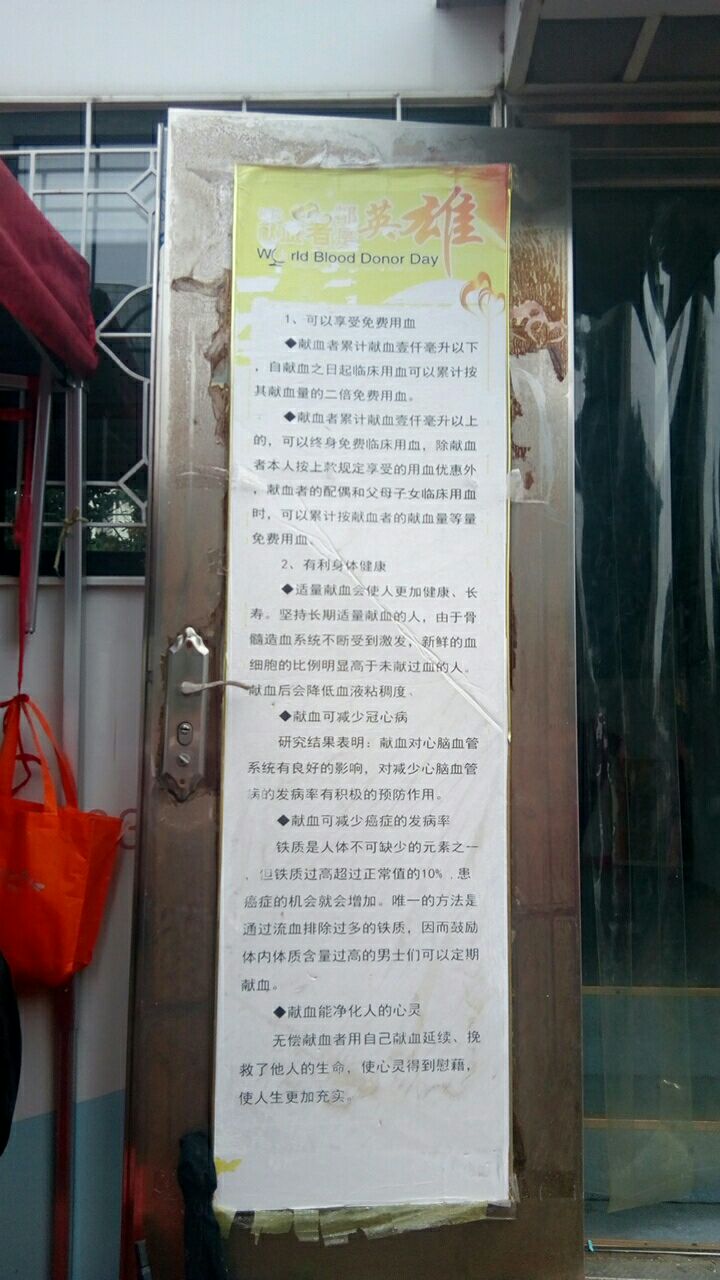 者是英雄
World Blood Donor Day
1、可以享受免费用血
◆献血者累计献血壹仟毫升以下
，自献血之日起临床用血可以累计按
其献血量的二倍免费用血。
◆献血者累计献血壹仟毫升以上
的，可以终身免费临床用血，除献血
者本人按上款规定享受的用血优惠外
，献血者的配偶和父母子女临床用血
时，可以累计按献血者的献血量等量
免费用血。
2、有利身体健康
◆适量献血会使人更加健康、长
寿。坚持长期适量献血的人，由于骨
髓造血系统不断受到激发，新鲜的血
细胞的比例明显高于未献过血的人。
献血后会降低血液粘稠度。
◆献血可减少冠心病
研究结果表明：献血对心脑血管
系统有良好的影响，对减少心脑血管
病的发病率有积极的预防作用。
◆献血可减少癌症的发病率
铁质是人体不可缺少的元素之一
，但铁质过高超过正常值的10%，患
癌症的机会就会增加。唯一的方法是
通过流血排除过多的铁质，因而鼓励
体内体质含量过高的男士们可以定期
献血。
◆献血能净化人的心灵
无偿献血者用自己献血延续、挽
救了他人的生命，使心灵得到慰藉，
使人生更加充实。